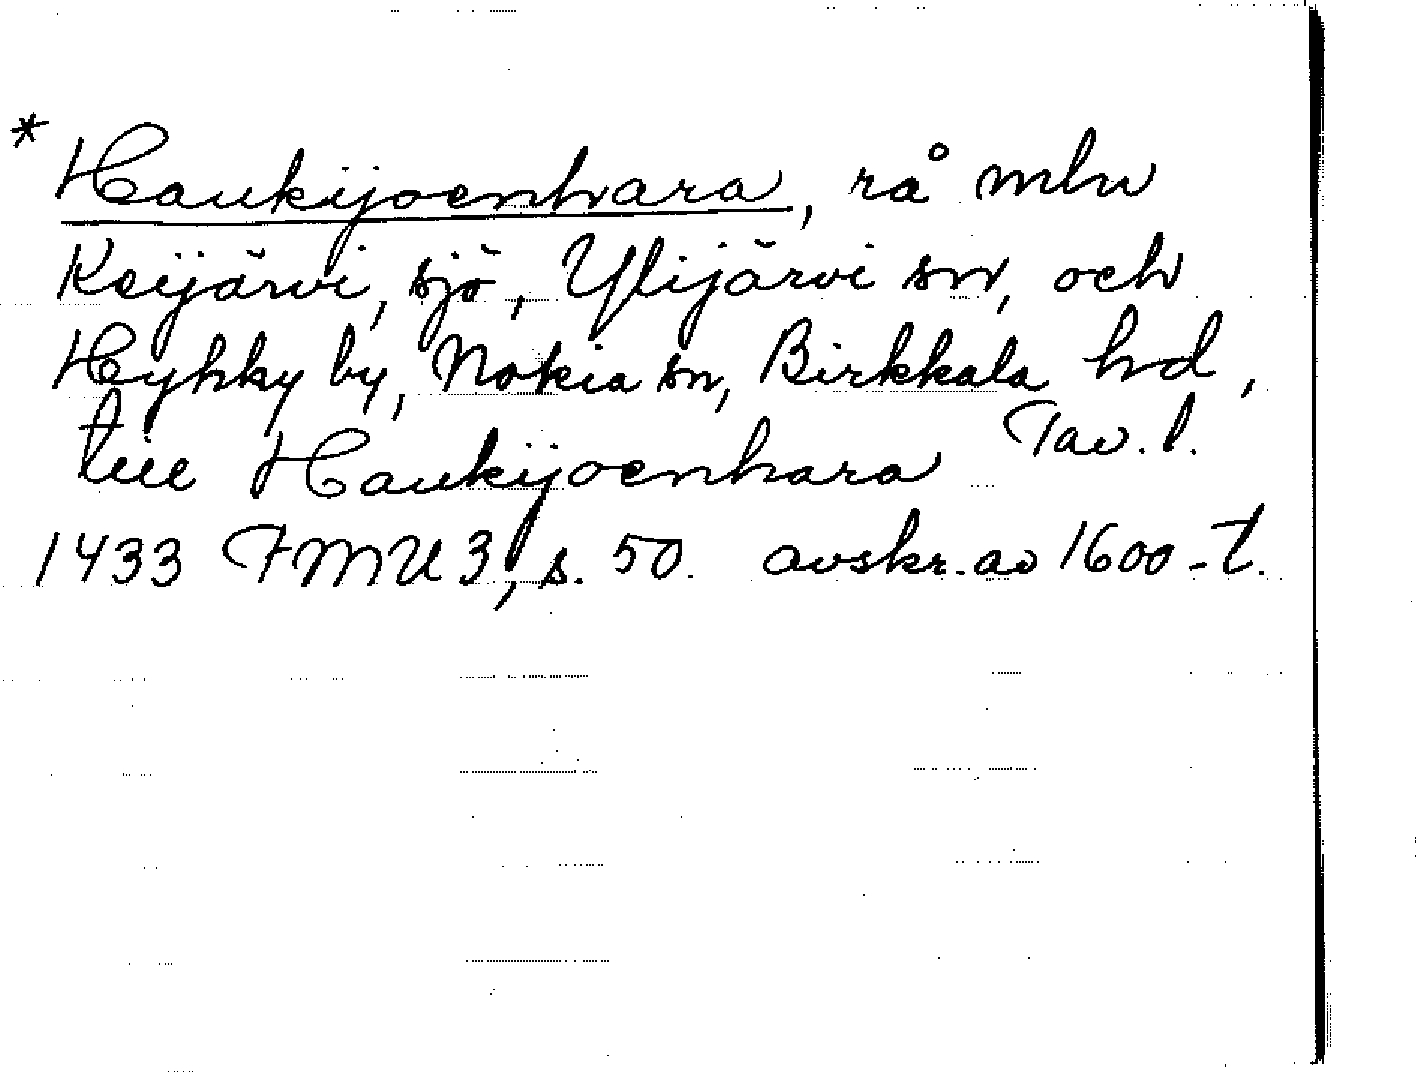 * Haukijoenhara, rå mln
Keijärvi, sjö, Ylijärvi sn, och
Hyhky by, Nokia sn, Birkkala hd,
Tav. l.
till Haukijoenhara
1433 FMU 3, s. 50. avskr. av 1600-t.